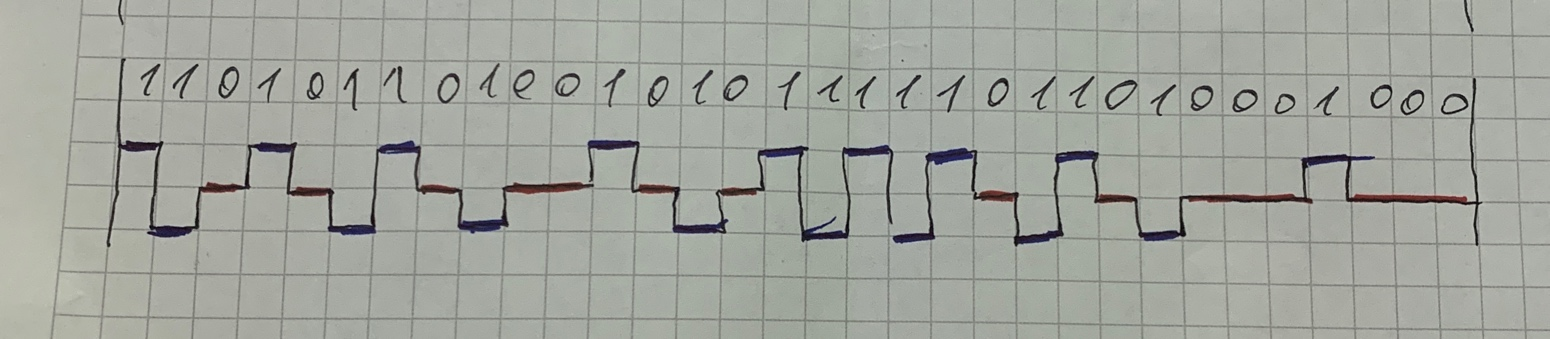 1 1 0 1 0 1 1 0 1 0 0 1 0 1 0 1 1 1 1 1 0 1 1 0 1 0 0 0 1 0 0 0